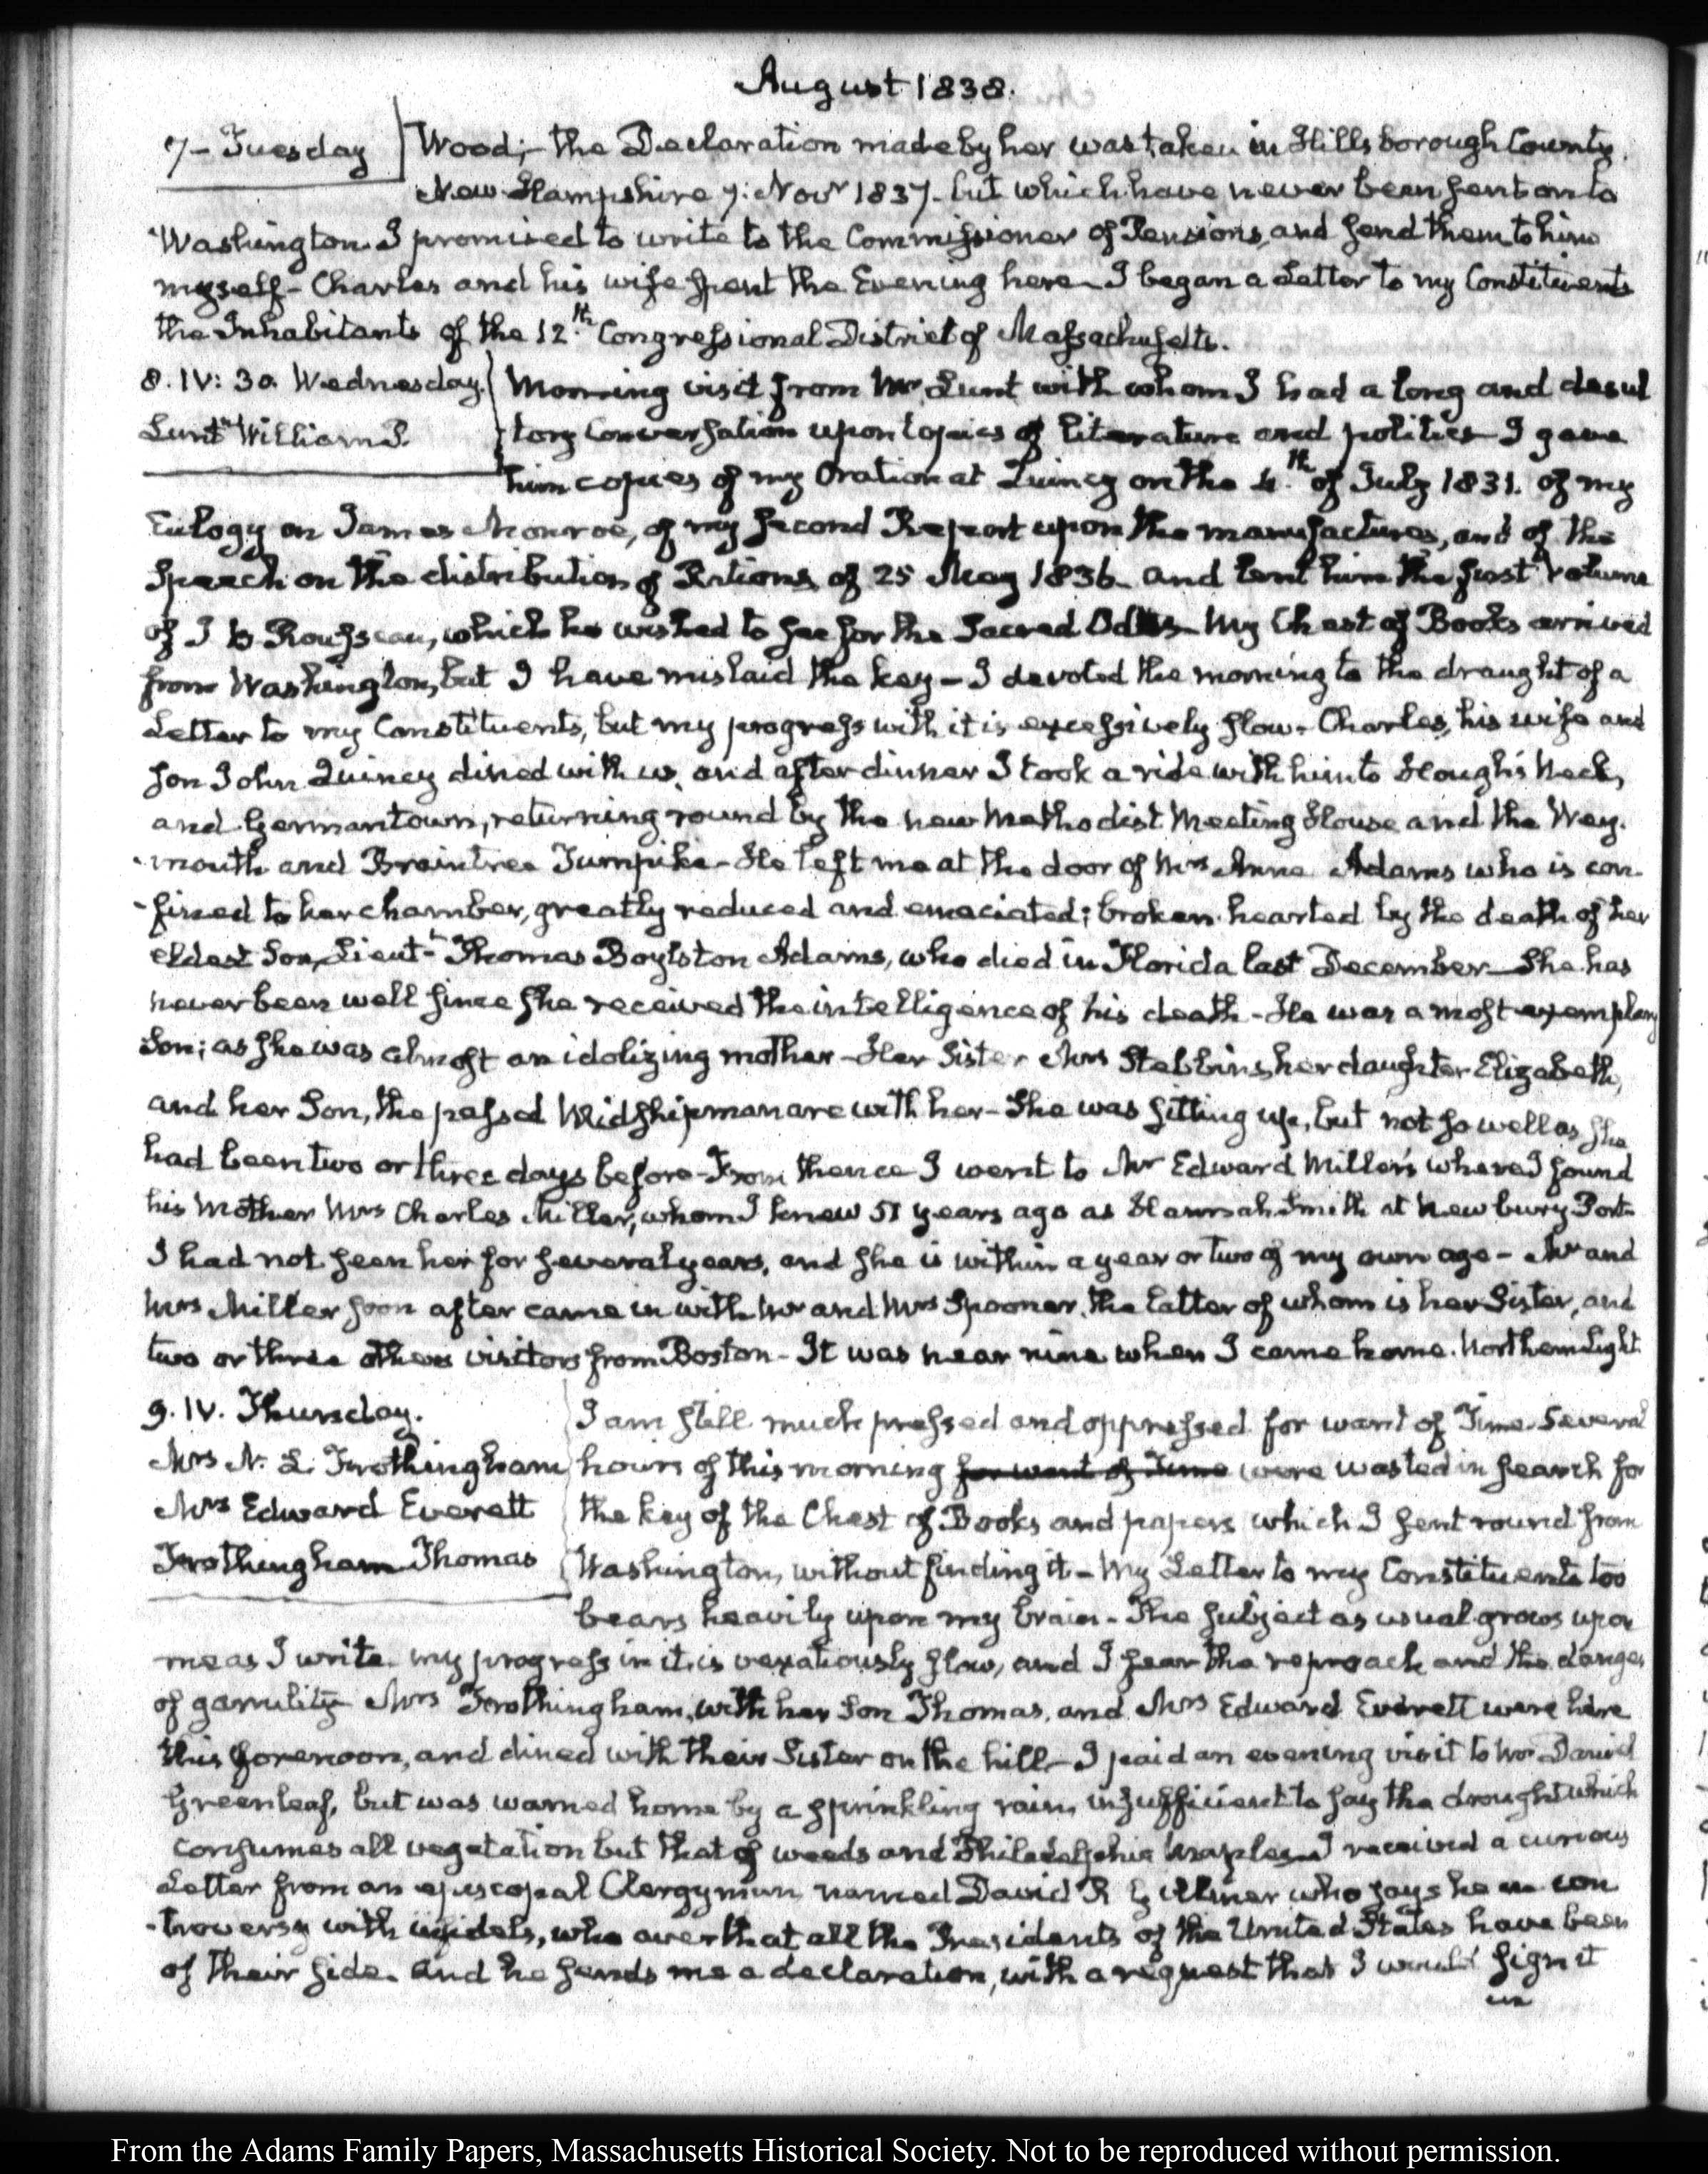 August 1838.
7- Tuesday
Wood;- the Declaration made by her was taken in Hillsborough County
New-Hampshire 7: Novr 1837- but which have never been sent on to
Washington. I promised to write to the Commissioner of Pensions, and send them to him
myself- Charles and his wife spent the Evening here- I began a Letter to my Constituents
the Inhabitants of the 12th Congressional District of Massachusetts.
8. IV: 30. Wednesday.
Lunt William P.
Morning visit from Mr Lunt with whom I had a long and desul
tory conversation upon topics of literature and politics- I gave
him copies of my Oration at Quincy on the 4th of July 1831. of my
Eulogy on James Monroe, of my second Report upon the manufactures, and of the
Speech on the distribution of Rations of 25 May 1836- and lent him the first volume
of J B Rousseau, which he wished to see for the Sacred Odes- My Chest of Books arrived
from Washington, but I have mislaid the key- I devoted the morning to the draught of a
Letter to my Constituents, but my progress with it is excessively slow- Charles, his wife and
son John Quincy dined with us, and after dinner I took a ride with him to Hough's Neck,
and Germantown, returning round by the new Methodist Meeting House and the Wey-
-mouth and Braintree Turnpike- He left me at the door of Mrs Anne Adams who is con-
-fined to her chamber, greatly reduced and emaciated; broken-hearted by the death of her
eldest Son, Lieut- Thomas Boylston Adams, who died in Florida last December- She has
never been well since she received the intelligence of his death- He was a most exemplary
Son; as she was almost an idolizing mother- Her Sister Mrs Stebbins, her daughter Elizabeth,
and her Son, the passed Midshipman are with her- She was sitting up, but not so well as she
had been two or three days before- From thence I went to Mr Edward Miller's where I found
his Mother Mrs Charles Miller, whom I knew 51 years ago as Hannah Smith at Newbury Port-
I had not seen her for several years, and she is within a year or two of my own age- Mr and
Mrs Miller soon after came in with Mr and Mrs Spooner, the latter of whom is her Sister, and
two or three others visitors from Boston- It was near nine when I came home. Northern Light
9. IV. Thursday.
Mrs N. L. Frothingham
Mrs Edward Everett
Frothingham Thomas
I am still much pressed and oppressed for want of Time. Several
hours of this morning for want of Time were wasted in search for
the key of the Chest of Books and papers which I sent round from
Washington, without finding it- My Letter to my Constituents too
bears heavily upon my brain- The subject as usual grows upon
me as I write- my progress in it is vexatiously slow, and I fear the reproach and the danger
of garrulity- Mrs Frothingham, with her Son Thomas, and Mrs Edward Everett were here
this forenoon, and dined with their Sister on the hill- I paid an evening visit to Mrs David
Greenleaf, but was warned home by a sprinkling rain, insufficient to say the drought which
consumes all vegetation but that of weeds and Philadelphia I received a curious
Letter from an episcopal Clergyman named David R who says he con
-troversy with infidels, who aver that all the Presidents of the United States have been
of their side- and he sends me a declaration, with a request that I would sign it